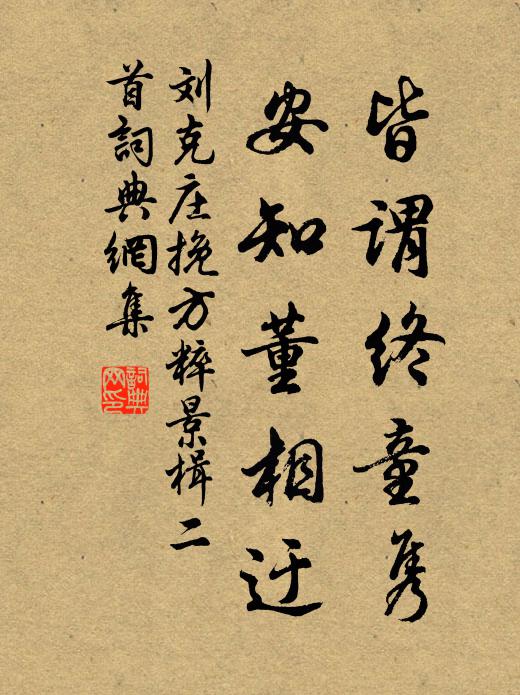 皆谓终童隽
安知董相迂
刘克庄挽方粹景楫二
首詞典網集
詞典網印